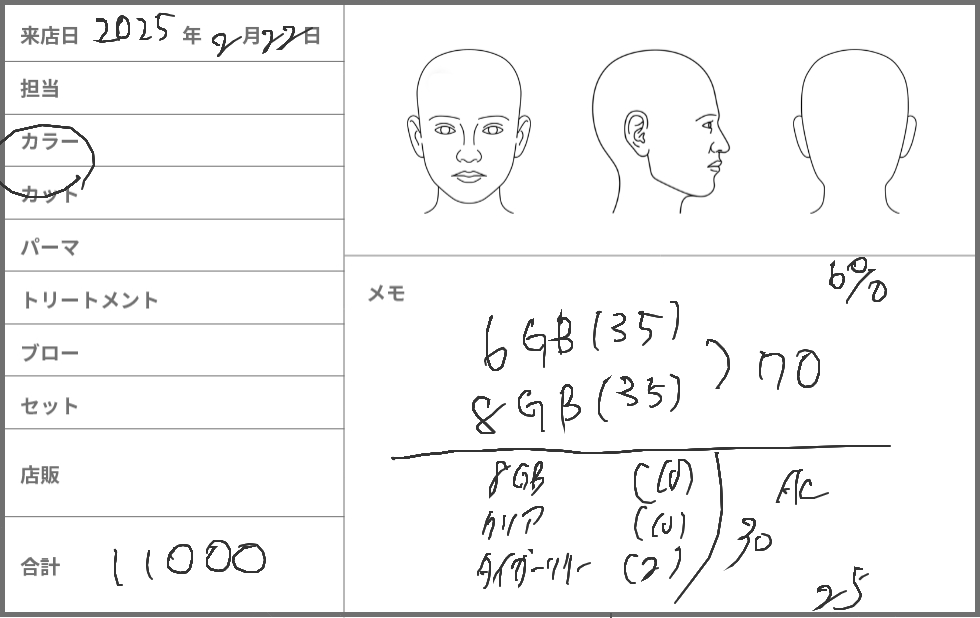 来店日 2025 年 2月22日
担当
カラー
カット
パーマ
トリートメント
ブロー
セット
店販
合計 11000
メモ
6%
6GB (35)
8GB (35) ) 70
8GB (10)
クリア (10)
タイガーリリー (2)
30
AC
25